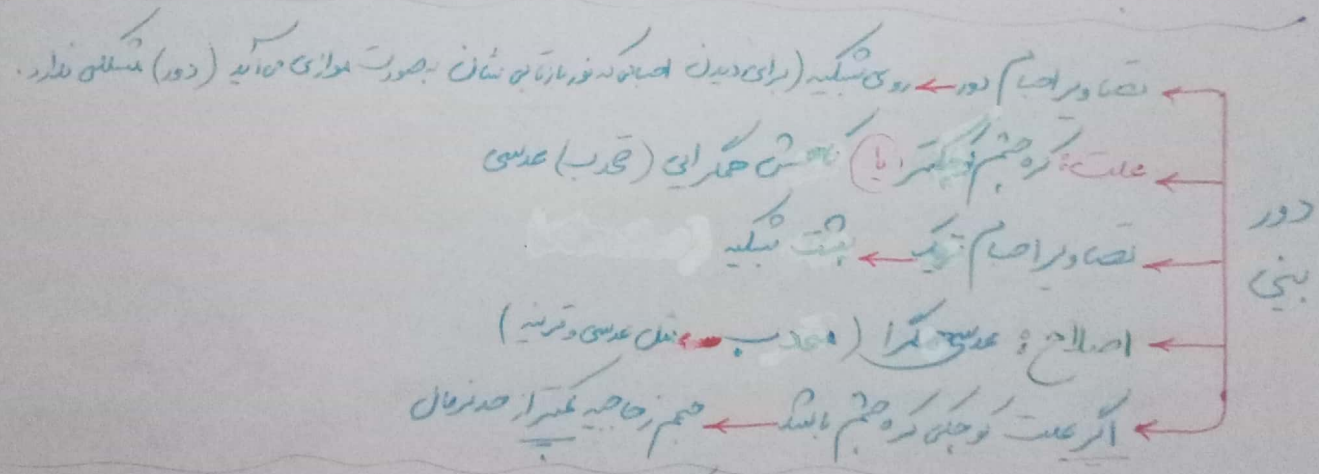 دور بینی
تصاویر اجسام دور ← روی شبکیه (برای دیدن اجسامی که نور بازتابی شان به صورت موازی می آید (دور) مشکلی ندارد.
علت: کره چشم کوچکتر (یا) کاهش همگرایی (تحدب) عدسی
تصاویر اجسام نزدیک ← پشت شبکیه
اصلاح: عدسی همگرا (محدب ← مثل عدسی و قرنیه)
اگر علت کوچکی کره چشم باشد ← حجم زجاجیه کمتر از حد نرمال